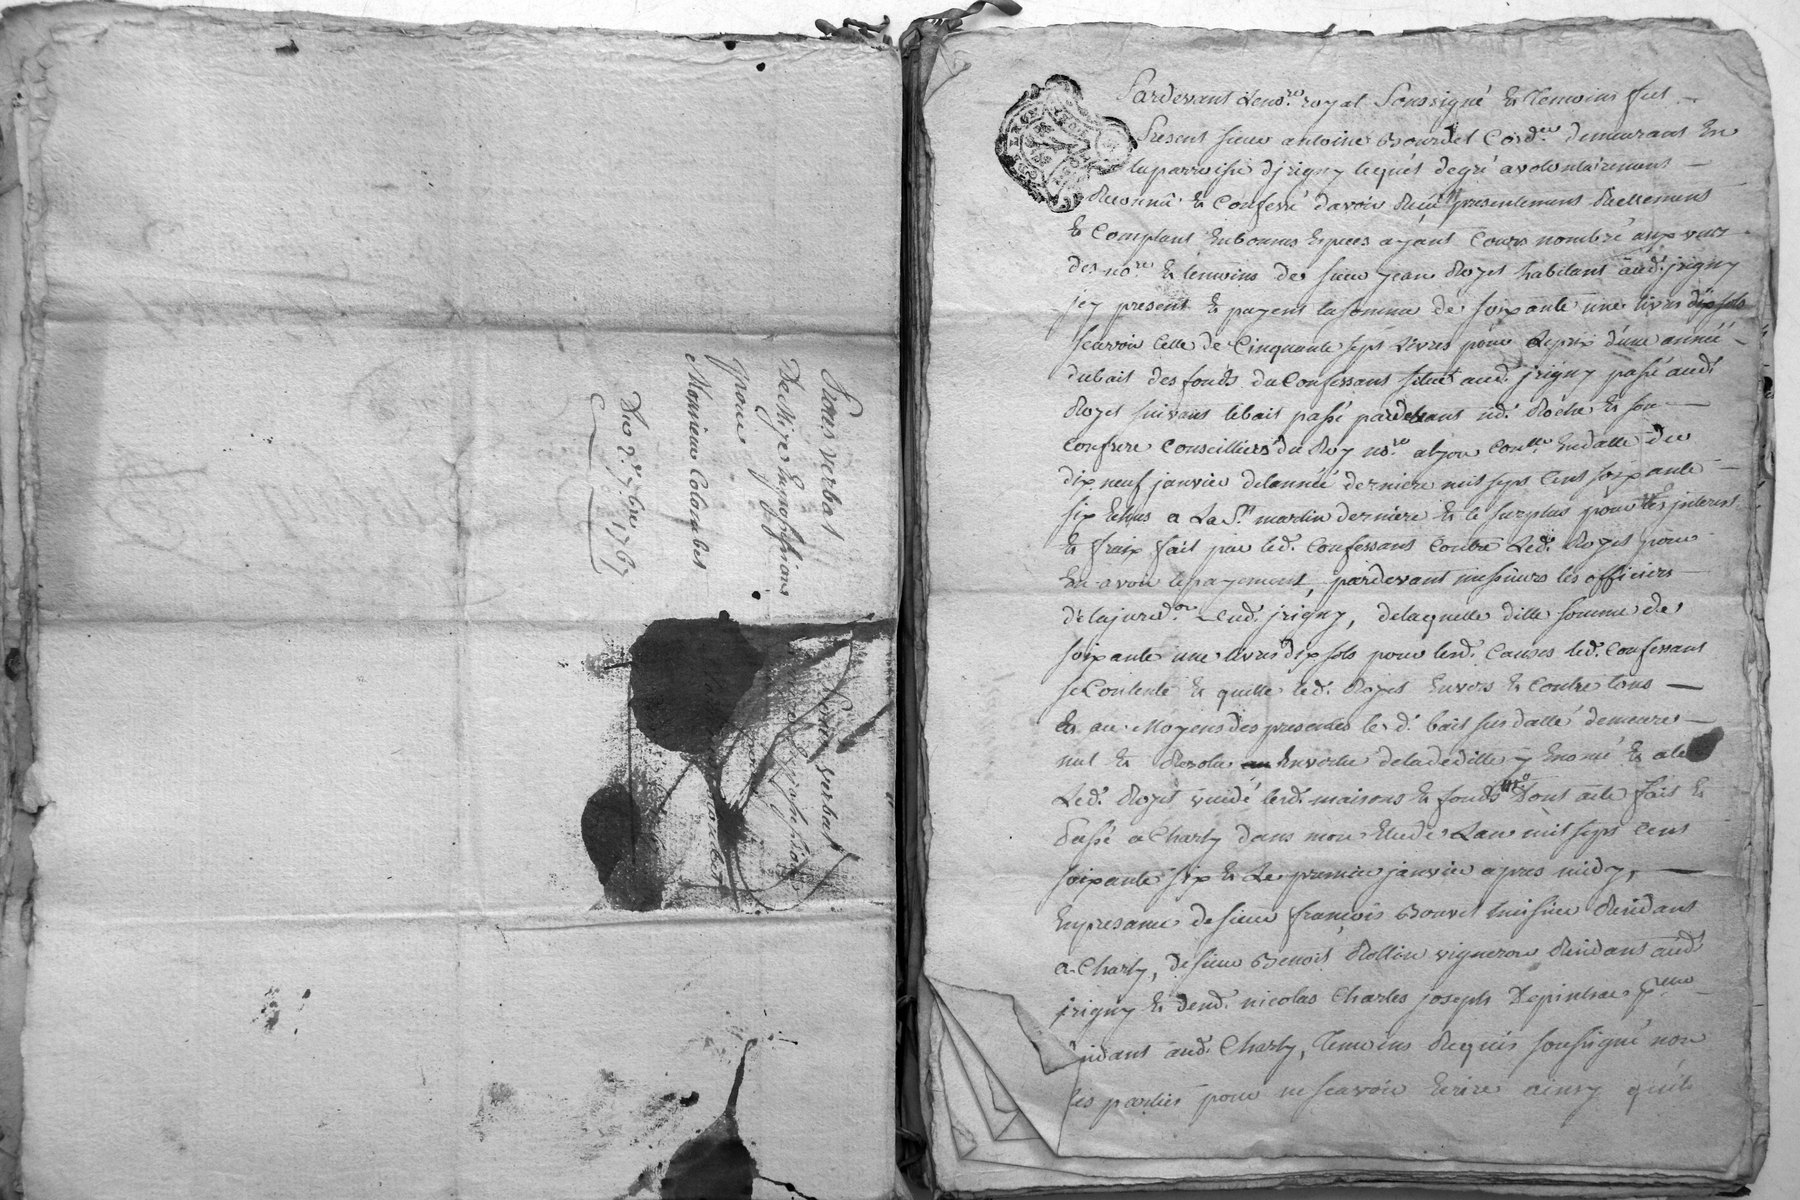 Sous verbal
De Mize En possessions
pour
Monsieur Colombet
Du 2e 7bre 1767
Sous verbal
Pardevant Le no.re royal Soussigné Et Temoins fut
Present sieur antoine Bourdel Cord.er demeurant En
la parroisse d'jrigny lequél de gré a volontairement
Reconnû Et Confessé davoir Reçu presentement Réellement
Et Comptant En bonnes Especes ayant Cours nombré aux vües
des no.re Et temoins de sieur jean Royet habitant aud. jrigny
jcy present Et payent la somme de soixante une livres dix sols
scavoir Celle de Cinquante sept Livres pour Le prix d'une année
du bail des fonds du Confessant situés aud. jrigny passé aud.
Royet suivant le bail passé pardevant Me Roche Et son
Confrere Conseillers du Roy no.re a Lyon En datte du
dix neuf janvier de l'année derniere mil sept Cent soixante
six Echus a La St. martin derniere Et le surplus pour les jnterest
Et fraix fait par led. Confessant Contre Led. Royet pour
En avoir le payement, pardevant messieurs les officiers
de la jurid.on dud. jrigny, de laquelle ditte somme de
soixante une livres dix sols pour lesd. Causes led. Confessant
se Contente Et quitte led. Royet Envers Et Contre tous
Et au Moyens des presentes led. bail sus datté demeure
nul Et Resolu En vertu de la deditte y Enoncé Et a le
Led. Royet vuidé lesd. maisons Et fonds Dont acte fait Et
Passé a Charly dans mon Etude L'an mil sept Cent
soixante six Et Le premier janvier apres midy,
En presance de sieur françois Bouvet huissier Residant
a Charly, de sieur Benoit Rollin vigneron Residant aud.
jrigny Et de nicolas Charles joseph Depinhac
Residant aud. Charly, Temoins Requis soussigné non
les parties pour ne scavoir Ecrire ainsy qu'ils